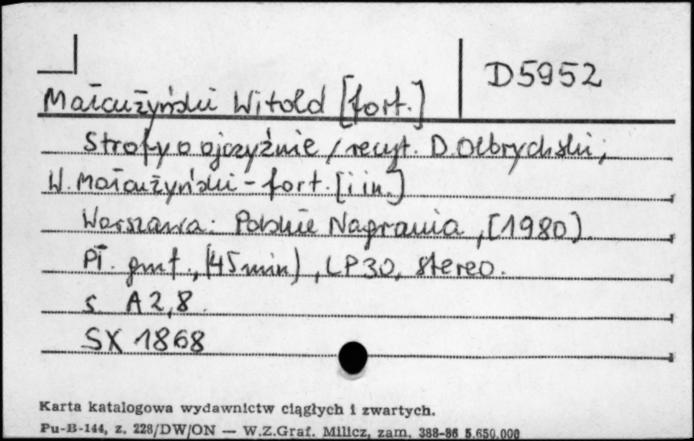 D5952
Małcużyński Witold [fort.]
Strofy o ojczyźnie / recyt. D. Olbrychski,
W. Małcużyński - fort. [i in.]
Warszawa: Polskie Nagrania, [1980]
Pł. gmf., (45 min), LP30, stereo.
s. A 2,8.
SX 1868
Karta katalogowa wydawnictw ciągłych i zwartych.
Pu-B-144, z. 228/DW/ON — W.Z.Graf. Milicz, zam. 388-86 5.650.000